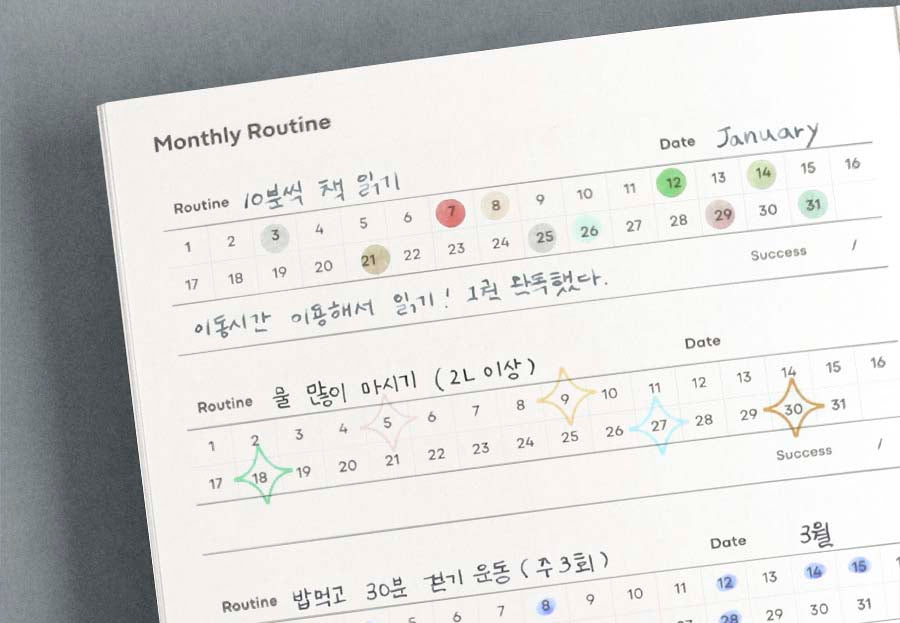 Monthly Routine
Routine 10분씩 책 읽기 Date January
1 2 3 4 5 6 7 8 9 10 11 12 13 14 15 16
17 18 19 20 21 22 23 24 25 26 27 28 29 30 31
Success /
이동시간 이용해서 읽기! 1권 완독했다.
Routine 물 많이 마시기 (2L 이상) Date
1 2 3 4 5 6 7 8 9 10 11 12 13 14 15 16
17 18 19 20 21 22 23 24 25 26 27 28 29 30 31
Success /
Routine 밥먹고 30분 걷기 운동 (주3회) Date 3월
6 7 8 9 10 11 12 13 14 15
28 29 30 31